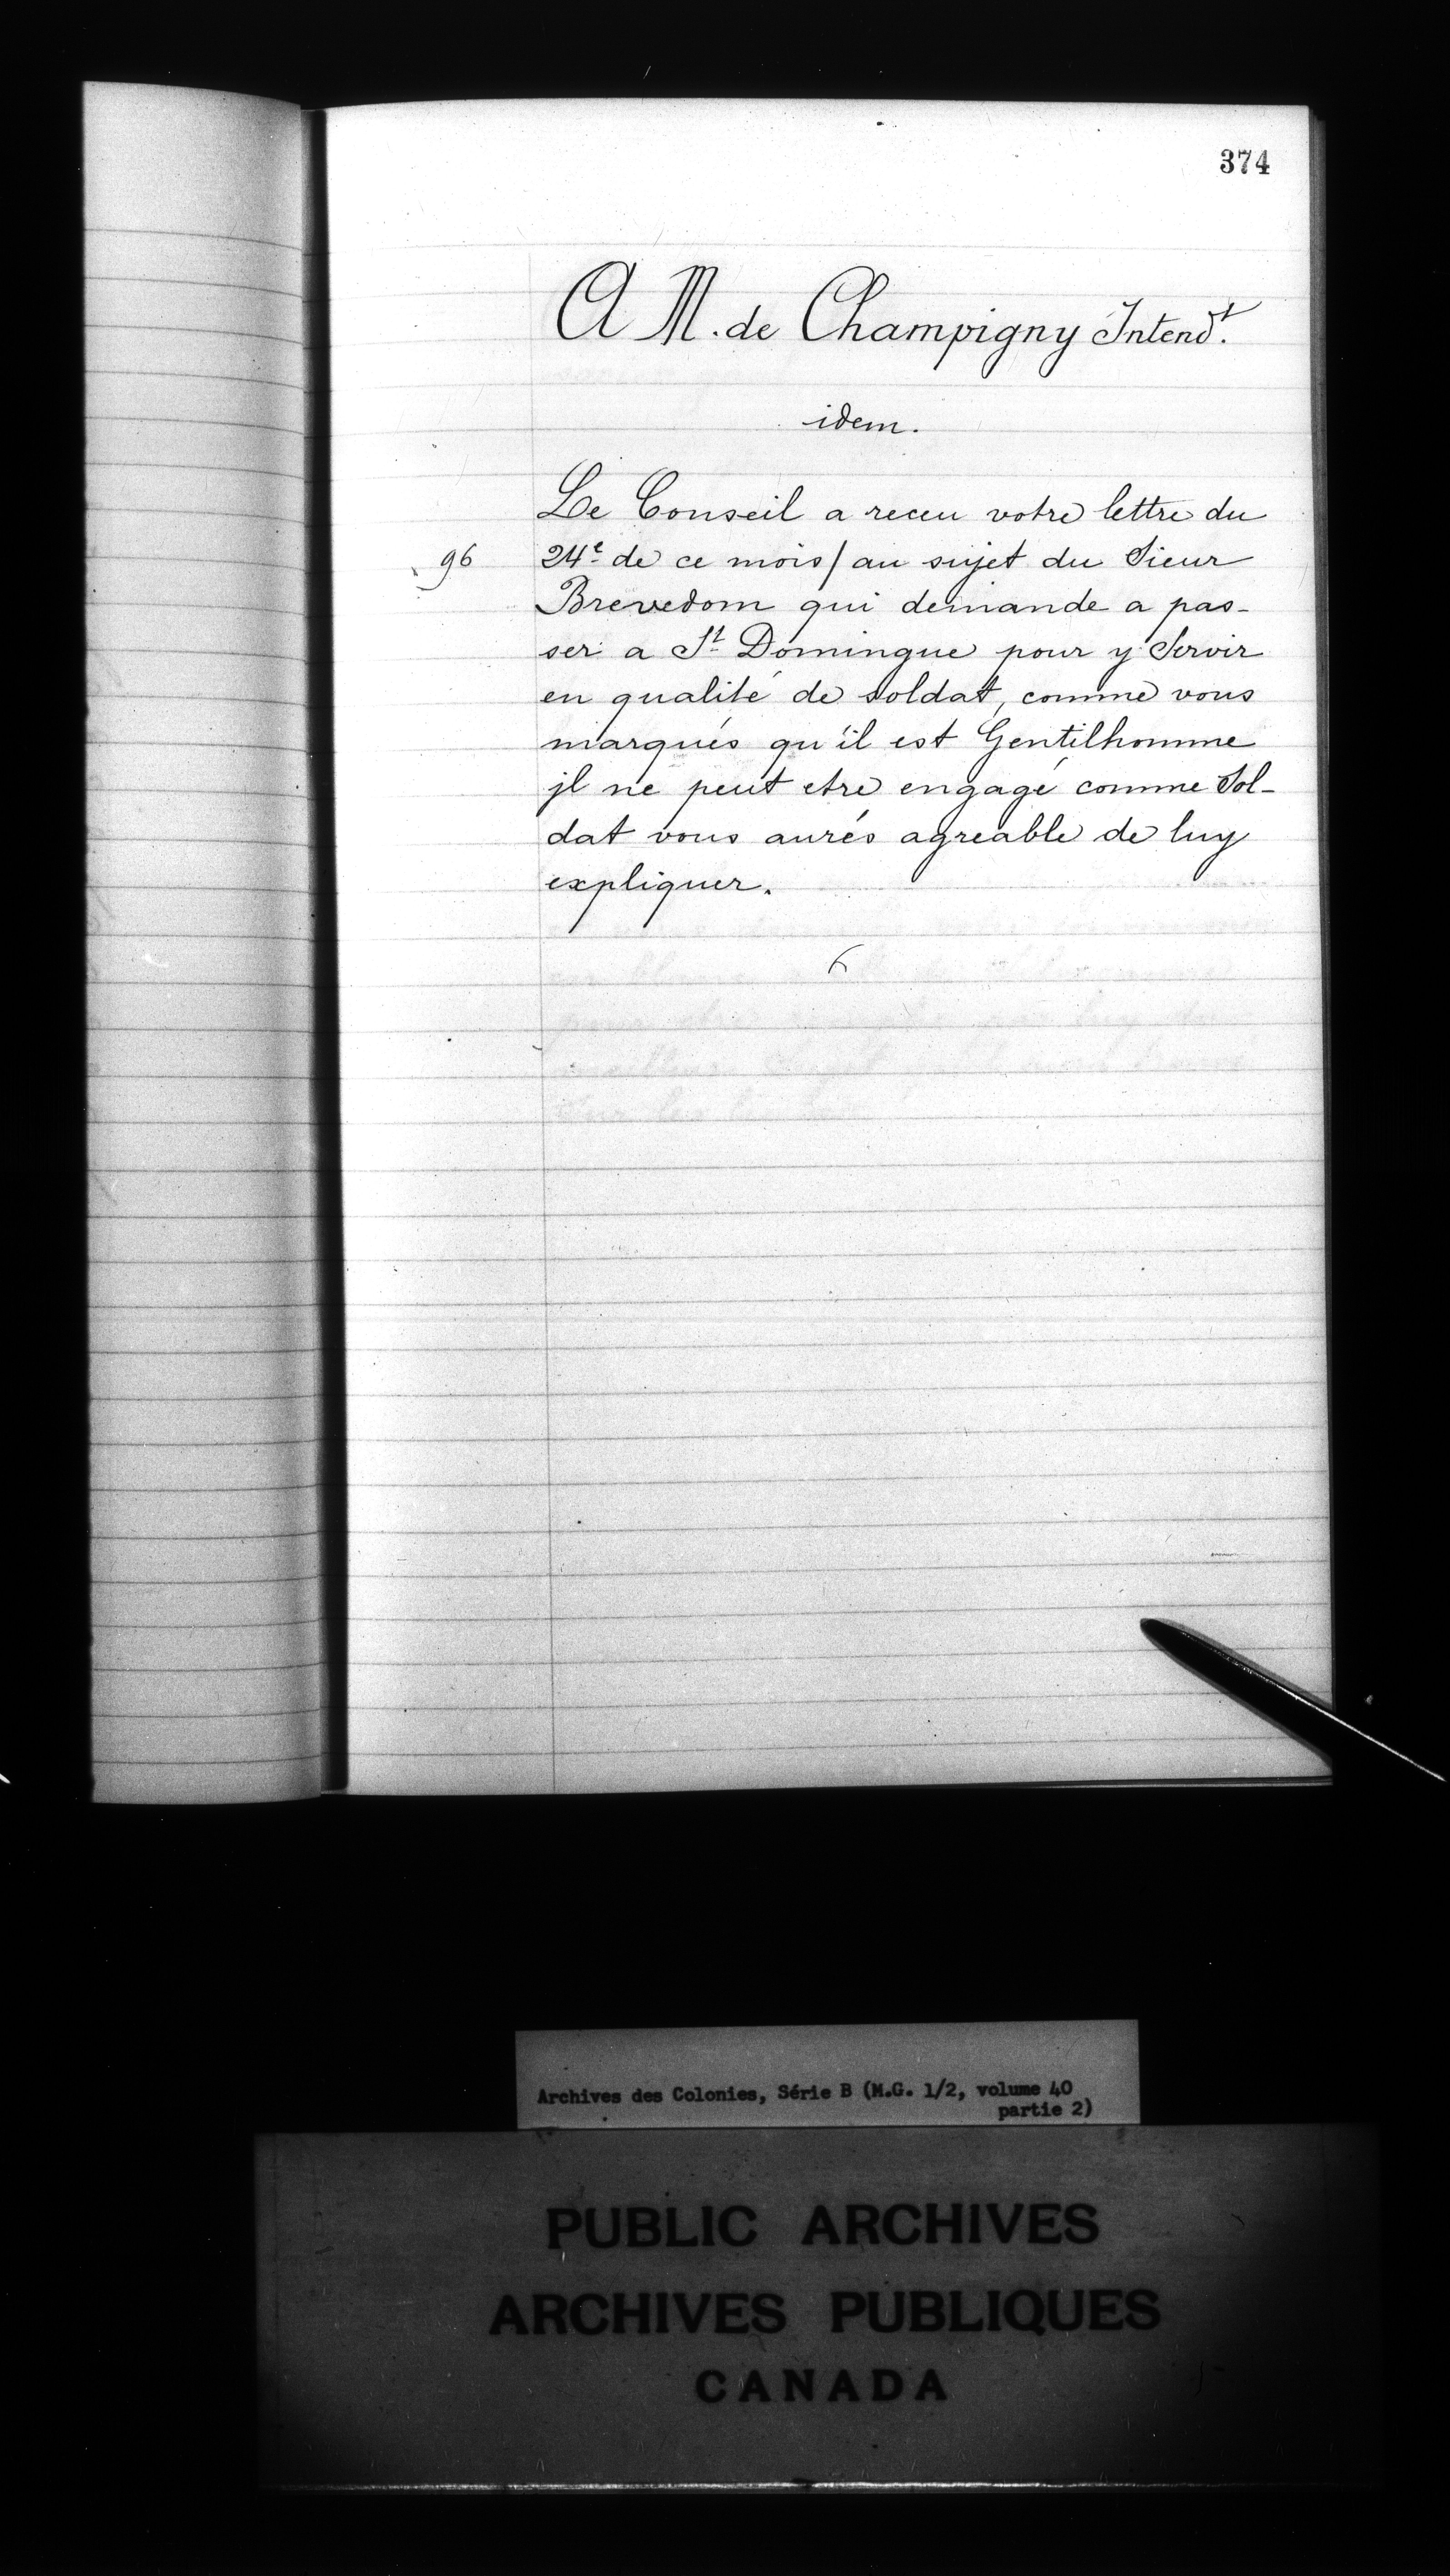 374
A M. de Champigny Intend.t
idem.
Le Conseil a receu votre lettre du
96 24e de ce mois / au sujet du Sieur
Brevedom qui demande a pas-
ser a St Domingue pour y Servir
en qualité de soldat, comme vous
marqués qu'il est Gentilhomme
jl ne peut etre engagé comme Sol-
dat vous aurés agreable de luy
expliquer.
Archives des Colonies, Série B (M.G. 1/2, volume 40
partie 2)
PUBLIC ARCHIVES
ARCHIVES PUBLIQUES
CANADA